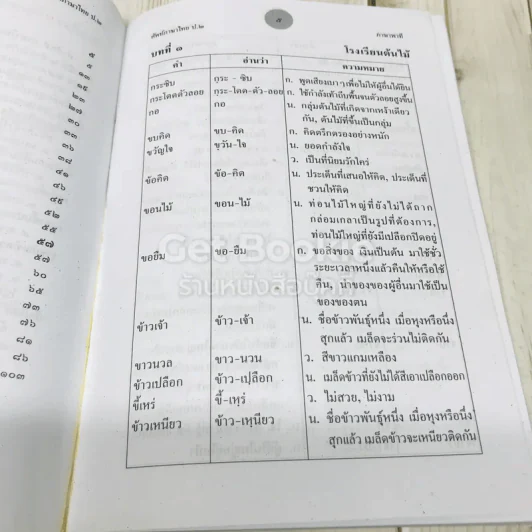 าษาไทย ป.๒
๕
๙
๑๓
๑๕
๒๓
๒๗
๓๐
๓๓
๓๘
๔๑
๔๖
๔๙
๕๒
๕๕
๕๗
๖๐
๖๕
๗๓
๗๖
๘๑
๘๖
๑๐๓
ศัพท์ภาษาไทย ป.๒ ภาษาพาที
บทที่ ๑ โรงเรียนต้นไม้
คำ อ่านว่า ความหมาย
กระซิบ กฺระ - ซิบ ก. พูดเสียงเบาๆเพื่อไม่ให้ผู้อื่นได้ยิน
กระโดดตัวลอย กฺระ-โดด-ตัว-ลอย ก. ใช้กำลังเท้าถีบพื้นจนตัวลอยสูงขึ้น
กอ กอ น. กลุ่มต้นไม้ที่เกิดจากเหง้าเดียว
กัน, ต้นไม้ที่ขึ้นเป็นกลุ่ม
ขบคิด ขบ-คิด ก. คิดตรึกตรองอย่างหนัก
ขวัญใจ ขฺวัน-ใจ น. ยอดกำลังใจ
ว. เป็นที่นิยมรักใคร่
ข้อคิด ข้อ-คิด น. ประเด็นที่เสนอให้คิด, ประเด็นที่
ชวนให้คิด
ขอนไม้ ขอน-ไม้ น. ท่อนไม้ใหญ่ที่ยังไม่ได้ถาก
กล่อมเกลาเป็นรูปที่ต้องการ,
ท่อนไม้ใหญ่ที่ยังมีเปลือกปิดอยู่
ขอยืม ขอ-ยืม ก. ขอสิ่งของ เงินเป็นต้น มาใช้ชั่ว
ระยะเวลาหนึ่งแล้วคืนให้หรือใช้
คืน, นำของของผู้อื่นมาใช้เป็น
ของของตน
ข้าวเจ้า ข้าว-เจ้า น. ชื่อข้าวพันธุ์หนึ่ง เมื่อหุงหรือนึ่ง
สุกแล้ว เมล็ดจะร่วนไม่ติดกัน
ขาวนวล ขาว-นวน ว. สีขาวแกมเหลือง
ข้าวเปลือก ข้าว-เปฺลือก น. เมล็ดข้าวที่ยังไม่ได้สีเอาเปลือกออก
ขี้เหร่ ขี้-เหฺร่ ว. ไม่สวย, ไม่งาม
ข้าวเหนียว ข้าว-เหฺนียว น. ชื่อข้าวพันธุ์หนึ่ง เมื่อหุงหรือนึ่ง
สุกแล้ว เมล็ดข้าวจะเหนียวติดกัน
GetBookie
ร้านหนังสือ